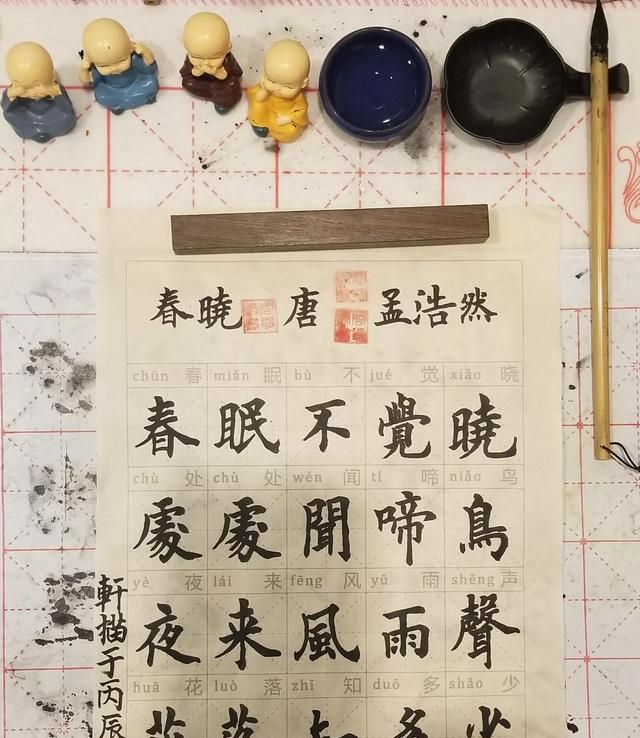 春曉 唐 孟浩然
chūn 春 mián 眠 bù 不 jué 觉 xiǎo 晓
春眠不覺曉
chù 处 chù 处 wén 闻 tí 啼 niǎo 鸟
處處聞啼鳥
yè 夜 lái 来 fēng 风 yǔ 雨 shēng 声
夜来風雨聲
huā 花 luò 落 zhī 知 duō 多 shǎo 少
花落知多少
軒描于丙辰